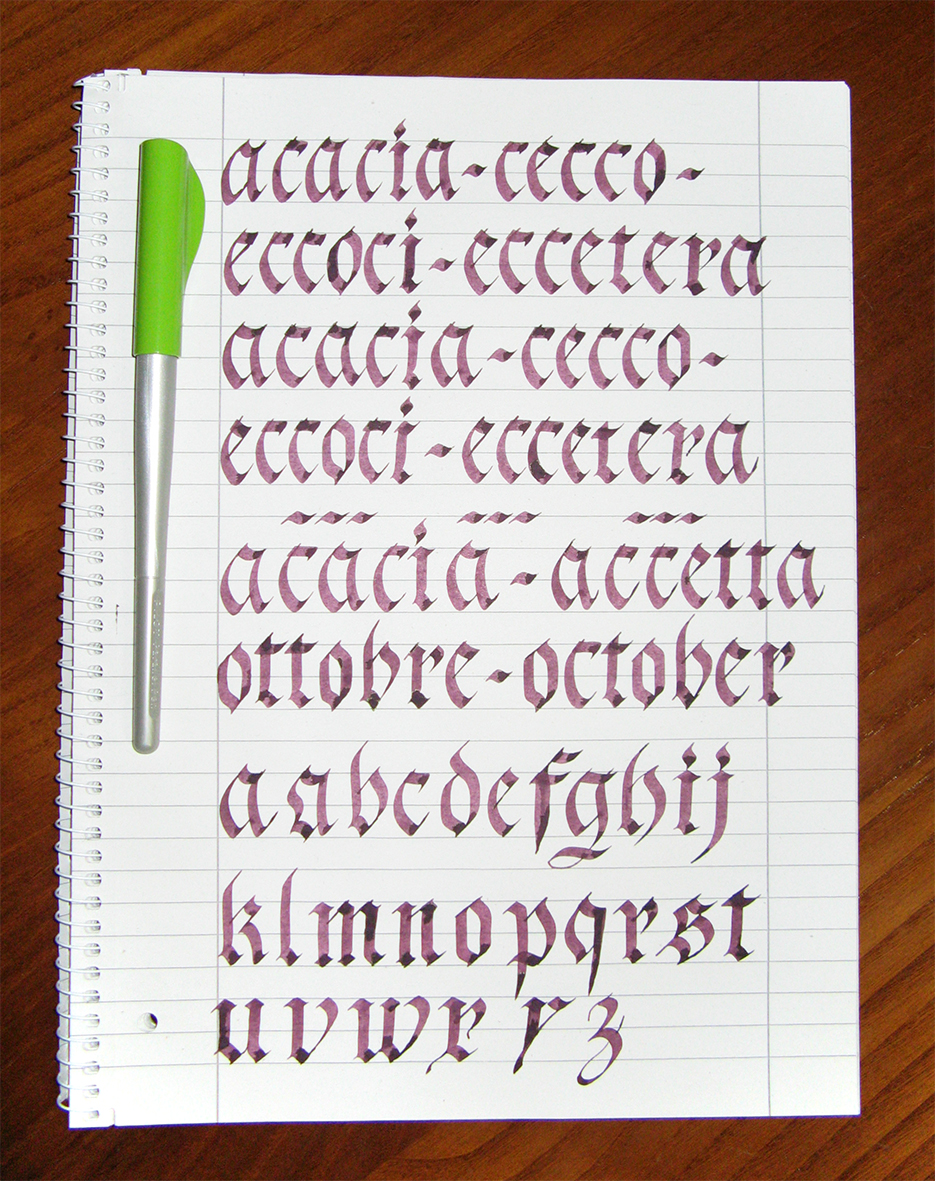 acacia-cecco-
eccoci-eccetera
acacia-cecco-
eccoci-eccetera
acacia-accetta
ottobre-october
aabcdefghij
klmnopqrst
uvwxyz